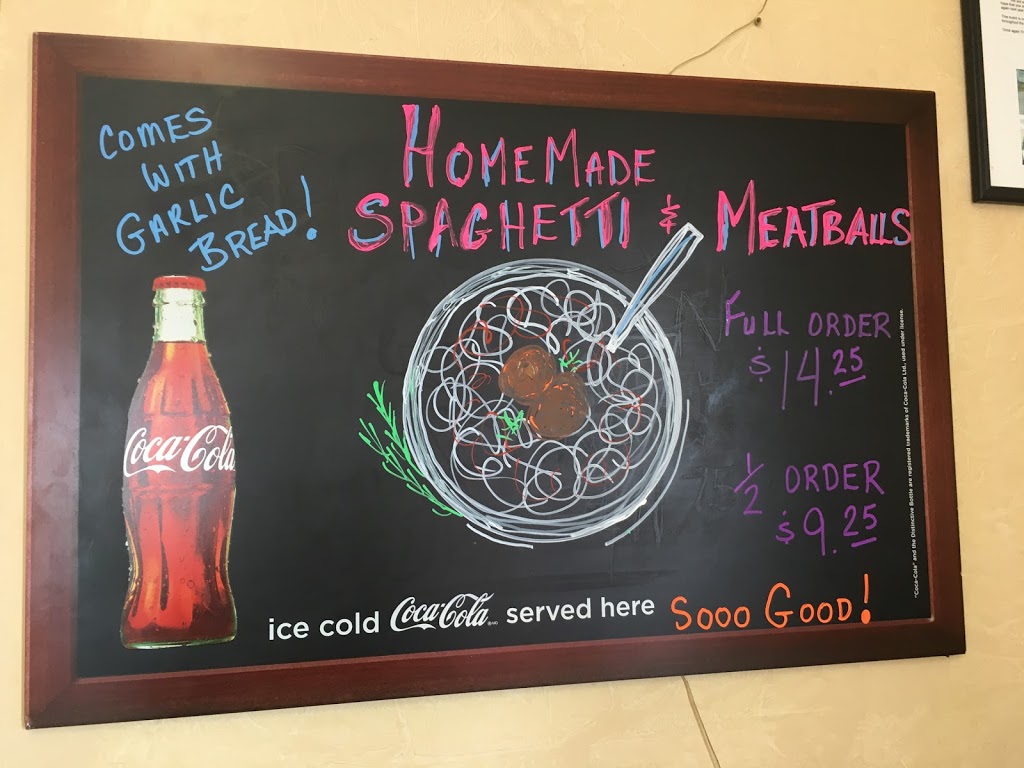 COMES
WITH
GARLIC
BREAD!
HOMEMADE
SPAGHETTI & MEATBALLS
FULL ORDER
$14.25
1/2 ORDER
$9.25
Coca-Cola
ice cold Coca-Cola served here
SOOO GOOD!
"Coca-Cola" and the Distinctive Bottle are registered trademarks of Coca-Cola Ltd., used under license.